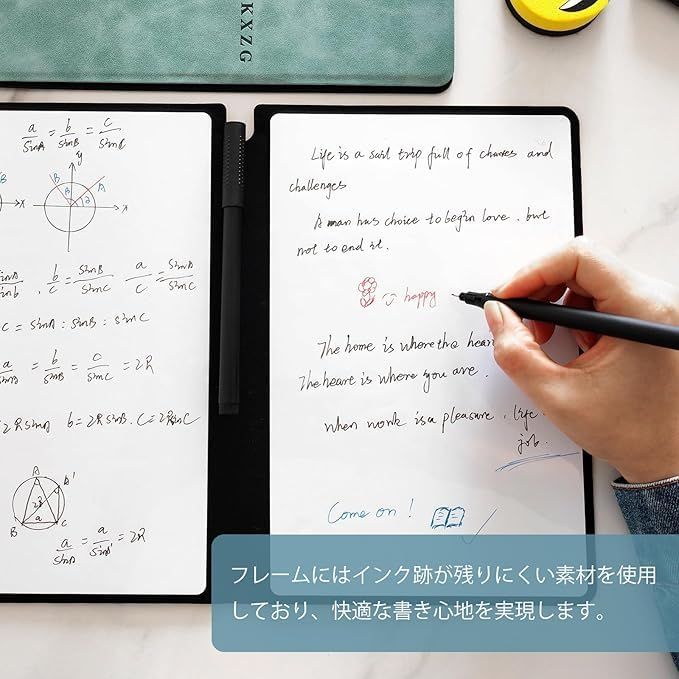 KXZG
a/sinA = b/sinB = c/sinC
y
B
A
x
x
b/c = sinB/sinC a/c = sinA/sinC
= sinA : sinB : sinC
= b/sinB = c/sinC = 2R
b = 2RsinB . C = 2RsinC
A
B'
B
a
C
= 2R
Life is a sail trip full of chances and
challenges
A man has choice to begin love . but
not to end it .
happy
The home is where the
The heart is where you are .
when work is a pleasure . life .
job .
Come on !
フレームにはインク跡が残りにくい素材を使用
しており、快適な書き心地を実現します。